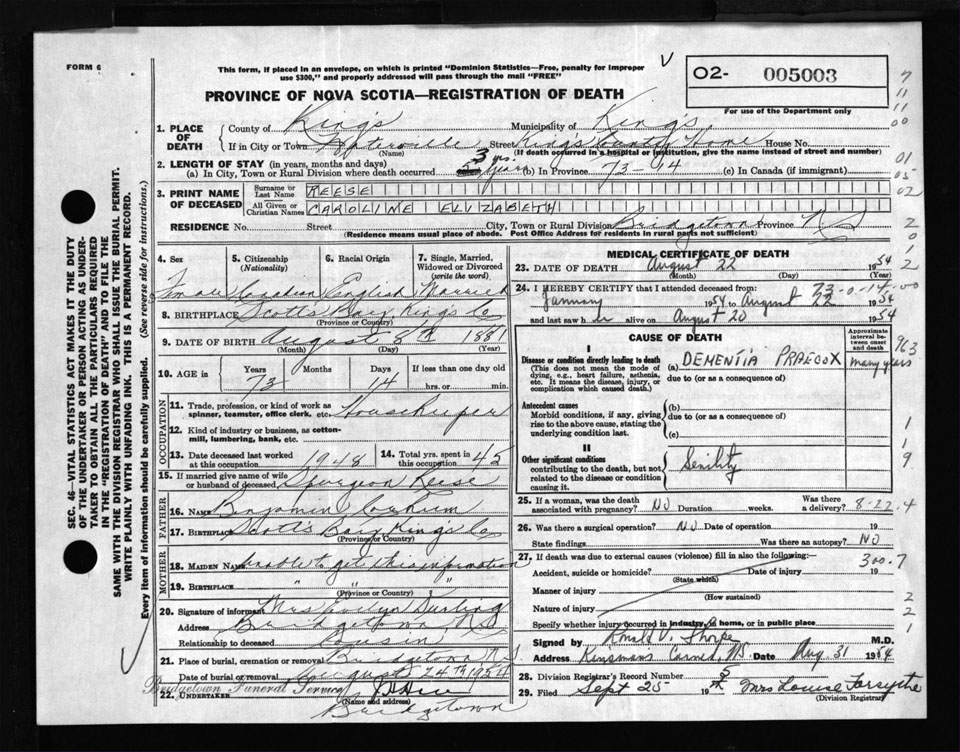 FORM 6
This form, if placed in an envelope, on which is printed "Dominion Statistics—Free, penalty for improper
use $300," and properly addressed will pass through the mail "FREE"
V
O2- 005003
For use of the Department only
PROVINCE OF NOVA SCOTIA—REGISTRATION OF DEATH
1. PLACE OF DEATH
County of King's Municipality of King's
If in City or Town Waterville Street King's County Home House No.
(Name) (If death occurred in a hospital or institution, give the name instead of street and number)
2. LENGTH OF STAY (in years, months and days)
(a) In City, Town or Rural Division where death occurred 3 yrs. years (b) In Province 73-14 (c) In Canada (if immigrant)
3. PRINT NAME OF DECEASED
Surname or Last Name REESE
All Given or Christian Names CAROLINE ELIZABETH
RESIDENCE No. Street City, Town or Rural Division Bridgetown Province NS
(Residence means usual place of abode. Post Office Address for residents in rural parts not sufficient)
4. Sex
Female
5. Citizenship
(Nationality)
Canadian
6. Racial Origin
English
7. Single, Married,
Widowed or Divorced
(write the word)
Married
8. BIRTHPLACE Scott's Bay, King's Co
(Province or Country)
9. DATE OF BIRTH August 8th 1881
(Month) (Day) (Year)
10. AGE in
Years Months Days If less than one day old
73 14 hrs. or min.
OCCUPATION
11. Trade, profession, or kind of work as
spinner, teamster, office clerk, etc. Housekeeper
12. Kind of industry or business, as cotton-
mill, lumbering, bank, etc.
13. Date deceased last worked
at this occupation 1948
14. Total yrs. spent in
this occupation 45
15. If married give name of wife
or husband of deceased Spurgeon Reese
FATHER
16. NAME Benjamin
17. BIRTHPLACE Scott's Bay King's Co
(Province or Country)
MOTHER
18. MAIDEN NAME unable to get this information
19. BIRTHPLACE " " "
(Province or Country)
20. Signature of informant Mrs Evelyn Durling
Address Bridgetown, NS
Relationship to deceased cousin
21. Place of burial, cremation or removal Bridgetown N.S.
Date of burial or removal August 24th 1954
Bridgetown Funeral Service
22. UNDERTAKER
(Name and address)
Bridgetown
MEDICAL CERTIFICATE OF DEATH
23. DATE OF DEATH August 22 1954
(Month) (Day) (Year)
73-0-14-00
24. I HEREBY CERTIFY that I attended deceased from:
January 1954 to August 22 1954
and last saw her alive on August 20 1954
CAUSE OF DEATH
Approximate
interval be-
tween onset
and death
I
Disease or condition directly leading to death
(This does not mean the mode of
dying, e.g., heart failure, asthenia,
etc. It means the disease, injury, or
complication which caused death.)
(a) DEMENTIA PRAECOX many years
due to (or as a consequence of)
Antecedent causes
Morbid conditions, if any, giving
rise to the above cause, stating the
underlying condition last.
(b)
due to (or as a consequence of)
(c)
II
Other significant conditions
contributing to the death, but not
related to the disease or condition
causing it.
Senility
25. If a woman, was the death
associated with pregnancy? NO Duration weeks. Was there
a delivery?
8-22-4
26. Was there surgical operation? NO Date of operation 19
State findings Was there an autopsy? NO
27. If death was due to external causes (violence) fill in also the following:
300.7
Accident, suicide or homicide? Date of injury 19
(State which)
Manner of injury
(How sustained)
Nature of injury
Specify whether injury occurred in industry, in home, or in public place
Signed by Ronald V. Thorpe M.D.
Address Kinsmans Corner, N.S. Date Aug 31 1954
28. Division Registrar's Record Number 5
29. Filed Sept 25 19 Mrs Louise Forsythe
(Division Registrar)
SEC. 46—VITAL STATISTICS ACT MAKES IT THE DUTY
OF THE UNDERTAKER OR PERSON ACTING AS UNDER-
TAKER TO OBTAIN ALL THE PARTICULARS REQUIRED
IN THE "REGISTRATION OF DEATH" AND TO FILE THE
SAME WITH THE DIVISION REGISTRAR WHO SHALL ISSUE THE BURIAL PERMIT.
WRITE PLAINLY WITH UNFADING INK. THIS IS A PERMANENT RECORD.
Every item of information should be carefully supplied. (See reverse side for instructions.)
7
11
11
00
01
05
02
2
0
1
2
963
1
1
9
2
2
1